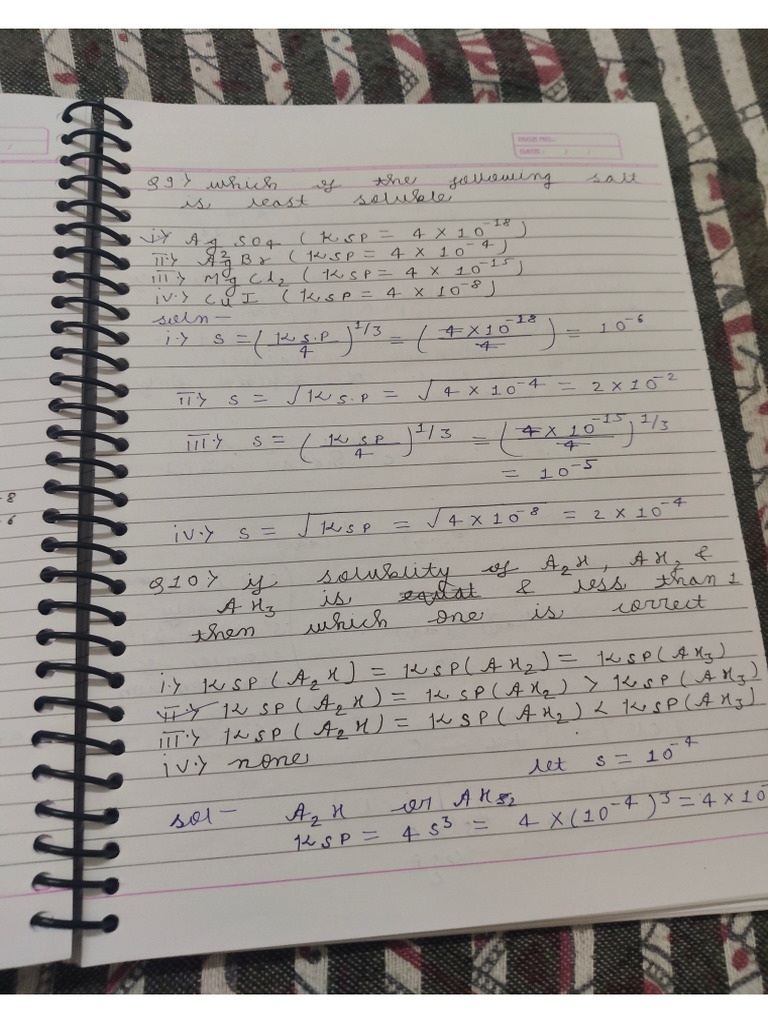 PAGE NO.:
DATE: / /
Q9> which of the following salt
is least soluble
i> Ag SO4 ( KSP = 4 × 10^-18 )
ii> A²g Br ( KSP = 4 × 10^-4 )
iii> Mg Cl2 ( KSP = 4 × 10^-15 )
iv> CuI ( KSP = 4 × 10^-8 )
soln -
i> S = (KS.P/4)^1/3 = (4×10^-18/4) = 10^-6
ii> S = √KS.P = √4 × 10^-4 = 2 × 10^-2
iii> S = (KSP/4)^1/3 = (4 × 10^-15/4)^1/3
= 10^-5
iv> S = √KSP = √4 × 10^-8 = 2 × 10^-4
Q10> if solublity of A2H, AH2 &
AH3 is equlat & less than 1
then which one is correct
i> KSP(A2H) = KSP(AH2) = KSP(AH3)
ii> KSP(A2H) = KSP(AH2) > KSP(AH3)
iii> KSP(A2H) = KSP(AH2) < KSP(AH3)
iv> none
let s = 10^-4
sol - A2H or AH2
KSP = 4S^3 = 4 × (10^-4)^3 = 4 × 10^-
-8
-6